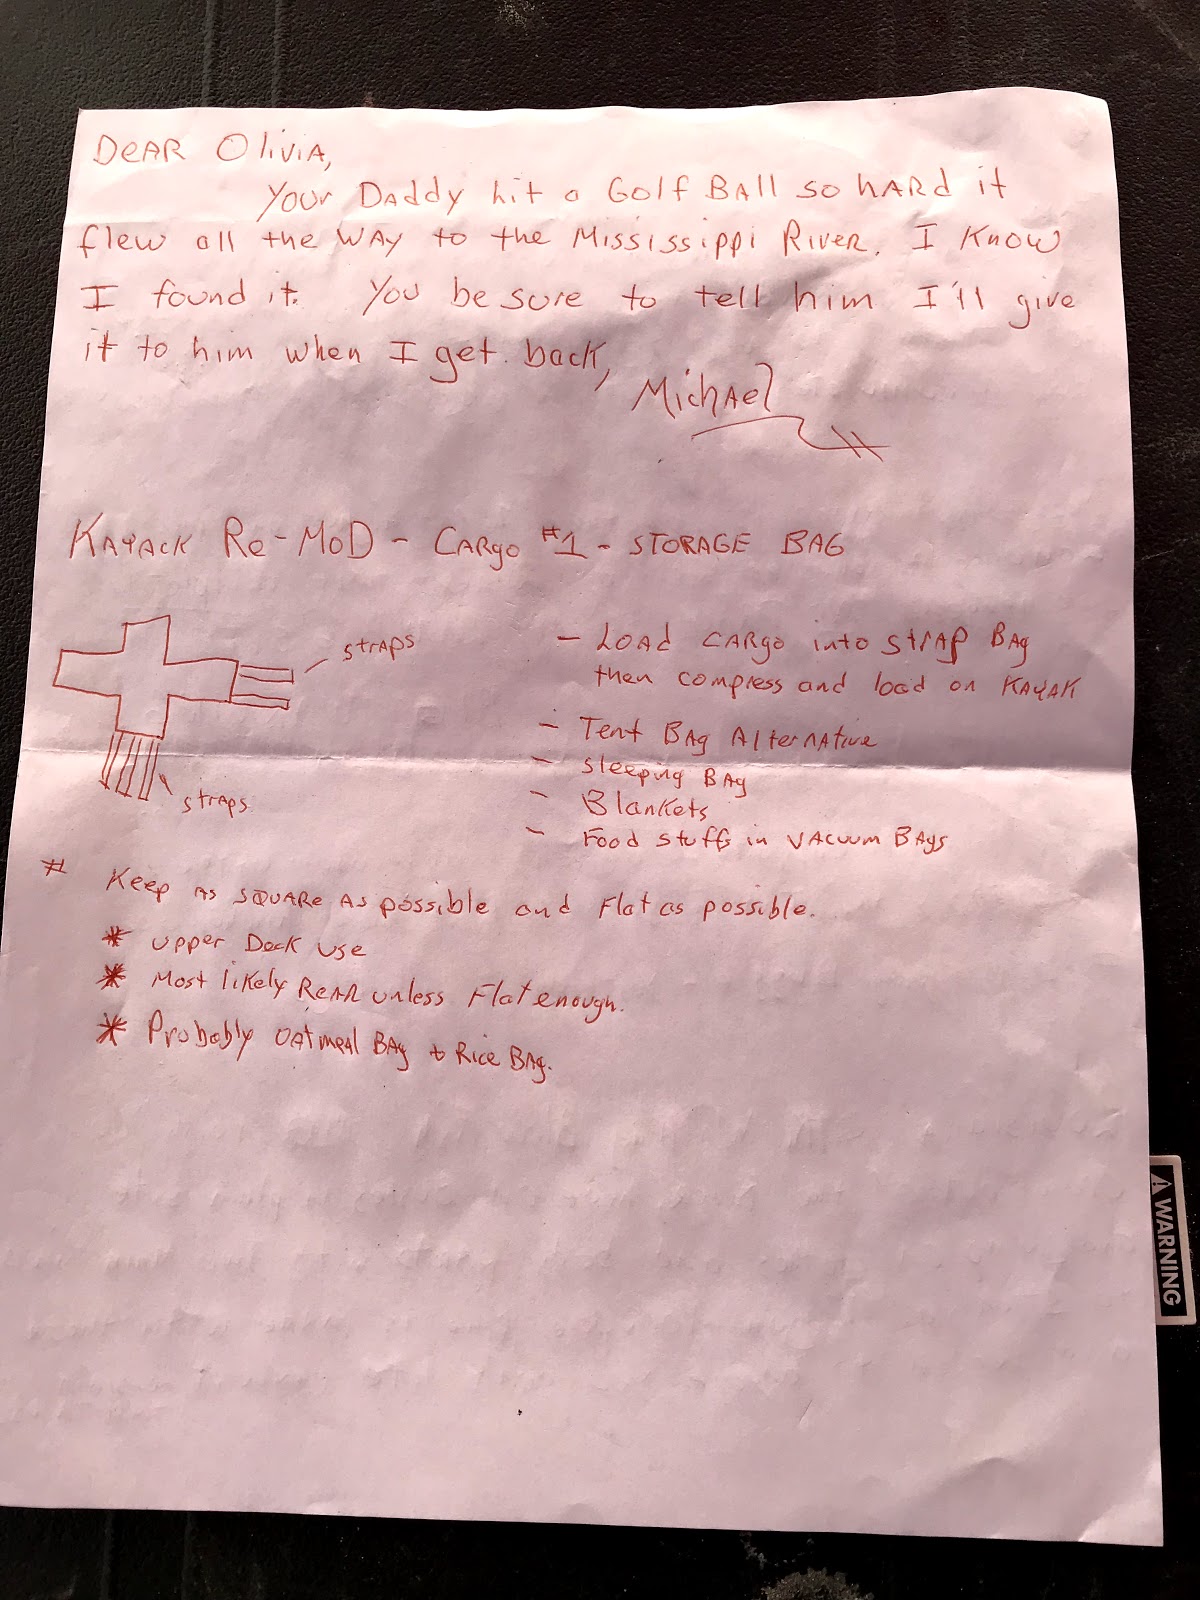 DEAR Olivia,
Your Daddy hit a Golf Ball so hard it
flew all the way to the Mississippi River. I know
I found it. You be sure to tell him I'll give
it to him when I get back,
Michael
Kayack Re-Mod - Cargo #1 - STORAGE BAG
straps
- Load cargo into strap Bag
then compress and load on Kayak
- Tent Bag Alternative
- Sleeping Bag
straps
- Blankets
- Food stuffs in vacuum Bags
* Keep as square as possible and Flat as possible.
* upper Deck use
* Most likely Rear unless Flat enough.
* Probably oatmeal Bag + Rice Bag.
WARNING